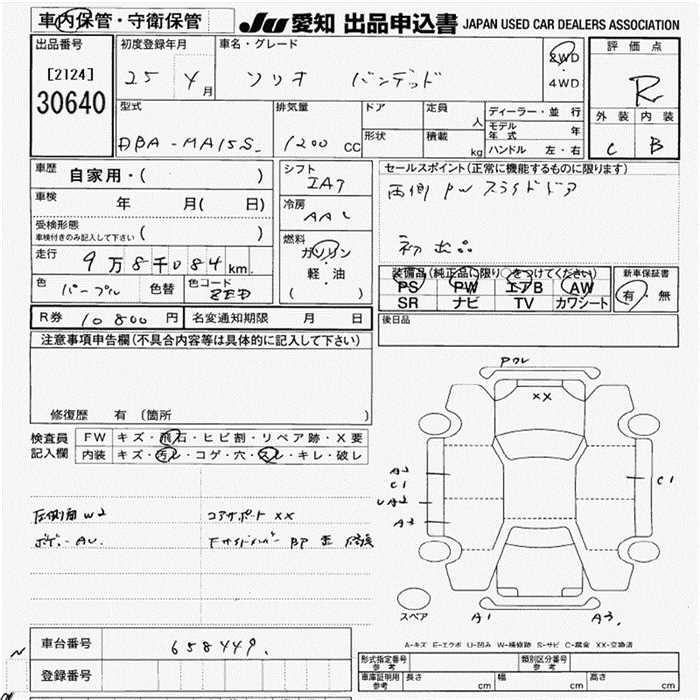 車内保管・守衛保管
JU 愛知 出品申込書 JAPAN USED CAR DEALERS ASSOCIATION
出品番号
[2124]
30640
初度登録年月
25 4月
車名・グレード
ソリオ バンデット
2WD
・
4WD
評価点
R
外装 内装
C B
型式
DBA-MA15S
排気量
1200 cc
ドア
形状
定員 人
積載 kg
ディーラー・並行
モデル年式 年
ハンドル 左・右
車歴
自家用・( )
車検
年 月( 日)
受検形態
車検付きのみ記入して下さい ( )
走行
9万8千084km
色 パープル 色替
色コード
ZED
シフト
IA7
冷房
AAC
燃料
ガソリン
・
軽・油
( )
セールスポイント(正常に機能するものに限ります)
両側PWスライドドア
初出品
装備品(純正品に限り○をつけてください)
PS PW エアB AW
SR ナビ TV カワシート
新車保証書
有・無
R券 10800円 名変通知期限 月 日
後日品
注意事項申告欄(不具合内容等は具体的に記入して下さい)
修復歴 有 (箇所 )
検査員
記入欄
FW キズ・飛石・ヒビ割・リペア跡・X要
内装 キズ・汚レ・コゲ・穴・スレ・キレ・破レ
左側面W2
ボデーAU
コアサポートXX
PウレXX
A2
C1
UA2
A2
C1
A1
A3
スペア
A-キズ E-エクボ U-凹み W-補修跡 S-サビ C-腐食 XX-交換済
車台番号 658449
登録番号
形式指定番号
参考
類別区分番号
参考
車庫証明用
参考
長さ cm 幅 cm 高さ cm